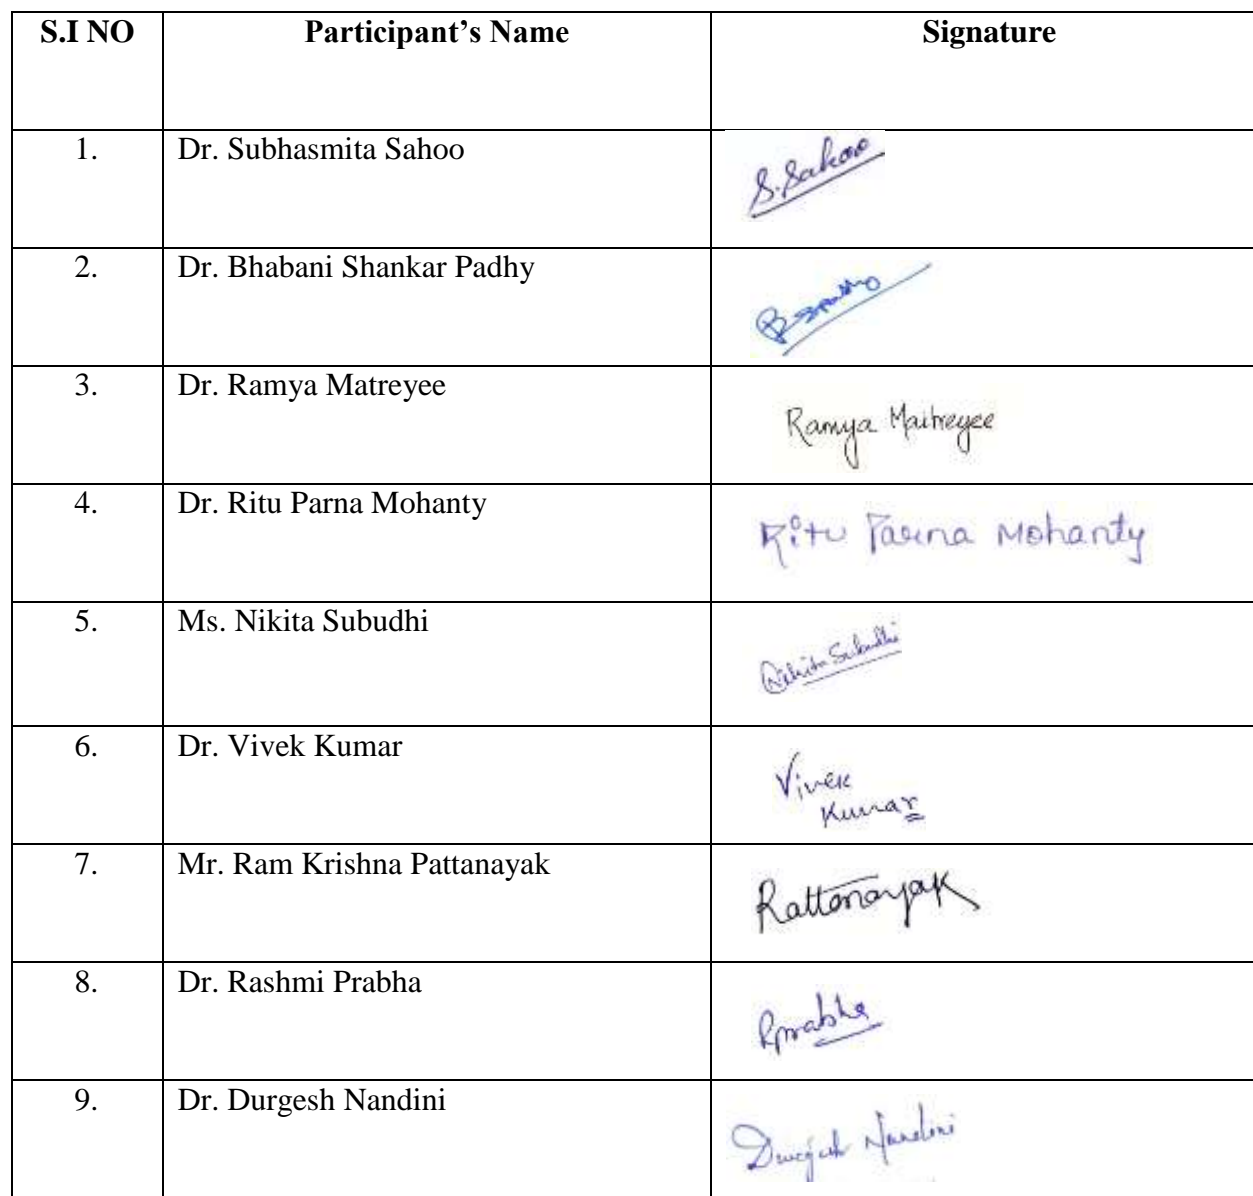 S.I NO Participant’s Name Signature
1. Dr. Subhasmita Sahoo S.Sahoo
2. Dr. Bhabani Shankar Padhy
3. Dr. Ramya Matreyee Ramya Maitreyee
4. Dr. Ritu Parna Mohanty Ritu Parna Mohanty
5. Ms. Nikita Subudhi Nikita Subudhi
6. Dr. Vivek Kumar Vivek
Kumar
7. Mr. Ram Krishna Pattanayak Rattanayak
8. Dr. Rashmi Prabha Rprabha
9. Dr. Durgesh Nandini Durgesh Nandini